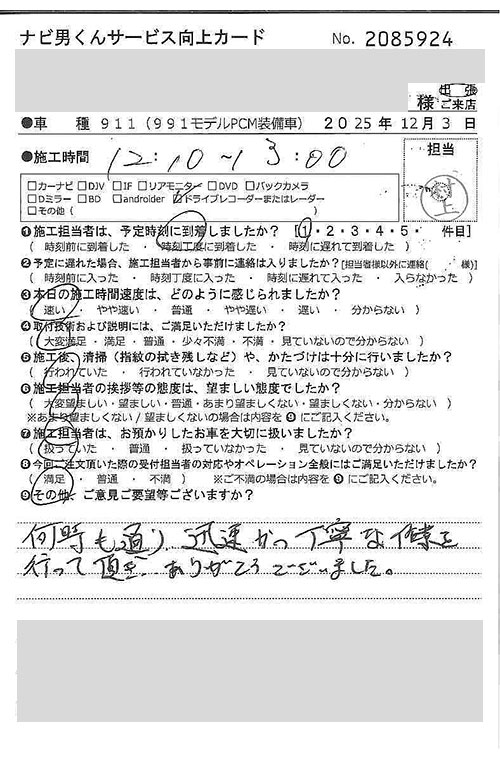 ナビ男くんサービス向上カード No. 2085924
出張
様 ご来店
●車 種 911(991モデルPCM装備車) 2025年12月3日
●施工時間 12:10〜13:00 担当
□カーナビ □DJV □IF □リアモニター □DVD □バックカメラ
□Dミラー □BD □androider ☑ドライブレコーダーまたはレーダー
□その他( )
❶施工担当者は、予定時刻に到着しましたか? [1・2・3・4・5・ 件目]
( 時刻前に到着した ・ 時刻丁度に到着した ・ 時刻に遅れて到着した )
❷予定に遅れた場合、施工担当者から事前に連絡は入りましたか?[担当者様以外に連絡( 様)]
( 時刻前に入った ・ 時刻丁度に入った ・ 時刻に遅れて入った ・ 入らなかった )
❸本日の施工時間速度は、どのように感じられましたか?
( 速い ・ やや速い ・ 普通 ・ やや遅い ・ 遅い ・ 分からない )
❹取付技術および説明には、ご満足いただけましたか?
( 大変満足 ・ 満足 ・ 普通 ・ 少々不満 ・ 不満 ・ 見ていないので分からない )
❺施工後、清掃(指紋の拭き残しなど)や、かたづけは十分に行いましたか?
( 行われていた ・ 行われていなかった ・ 見ていないので分からない )
❻施工担当者の挨拶等の態度は、望ましい態度でしたか?
( 大変望ましい・望ましい・普通・あまり望ましくない・望ましくない・分からない )
※あまり望ましくない/望ましくないの場合は内容を❾にご記入ください。
❼施工担当者は、お預かりしたお車を大切に扱いましたか?
( 扱っていた ・ 普通 ・ 扱っていなかった ・ 見ていないので分からない )
❽今回ご注文頂いた際の受付担当者の対応やオペレーション全般にはご満足いただけましたか?
( 満足 ・ 普通 ・ 不満 ) ※ご不満の場合は内容を❾にご記入ください。
❾その他、ご意見ご要望等ございますか?
何時も通り、迅速かつ丁寧な作業を
行って頂き、ありがとうございました。